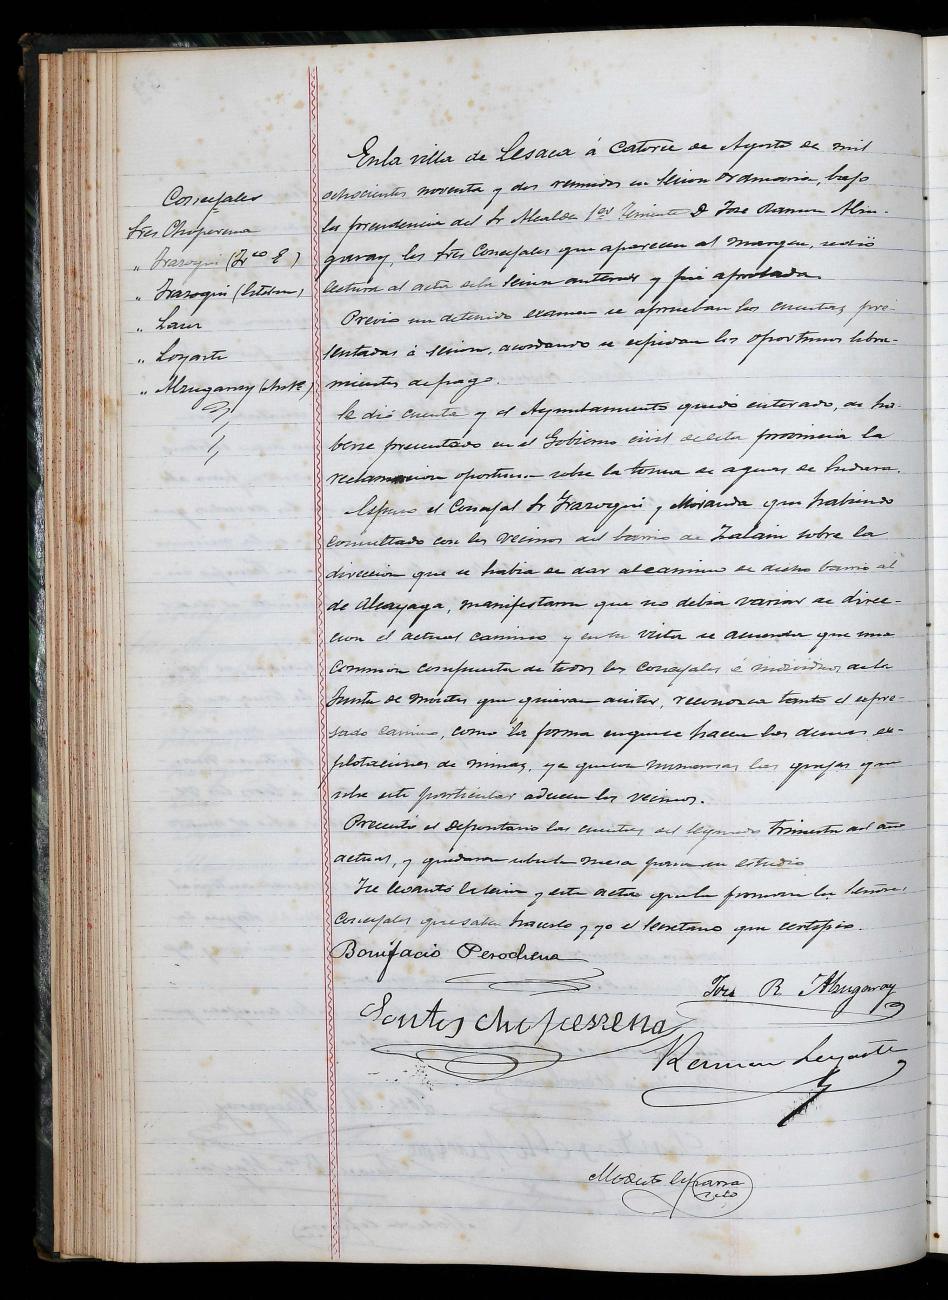 Concejales
Sres Choperena
" Irazoqui (Fr.co E)
" Irazoqui (Esteban)
"
" Loyarte
" Almgaray
En la villa de Lesaca á catorce de Agosto de mil
ochocientos noventa y dos reunidos en sesion ordinaria, bajo
la presidencia del Sr Alcalde 1er Teniente D Jose Ramon Alzu-
garay, los Sres Concejales que aparecen al margen, se dió
lectura al acta de la sesion anterior y fué aprobada.
Previo un detenido examen se aprueban las cuentas pre-
sentadas á sesion, acordando se expidan los oportunos libra-
mientos de pago.
Se dió cuenta y el Ayuntamiento quedó enterado, de ha-
berse presentado en el Gobierno civil de esta provincia la
reclamacion oportuna sobre la toma de aguas de Endara.
Expuso el Concejal Sr Irazoqui y Miranda que habiendo
consultado con los vecinos del barrio de Zalain sobre la
direccion que se habia de dar al camino de dicho barrio al
de Alcayaga, manifestaron que no debia variar de direc-
cion el actual camino y en su vista se acuerda que una
comision compuesta de todos los concejales é individuos de la
Junta de montes que quieran asistir, reconozca tanto el expre-
sado camino, como la forma en que se hacen las demas ex-
plotaciones de minas, ya que son numerosas las quejas que
sobre este particular aducen los vecinos.
Presentó el Depositario las cuentas del segundo trimestre del año
actual, y quedaron sobre la mesa para su estudio
Se levantó la sesion y esta acta que la firman los Señores
Concejales que saben hacerlo y yo el Secretario que certifico.
Bonifacio Perochena
Jose R Alzugaray
Santos Choperena
Ramon Loyarte
Modesto
Srio